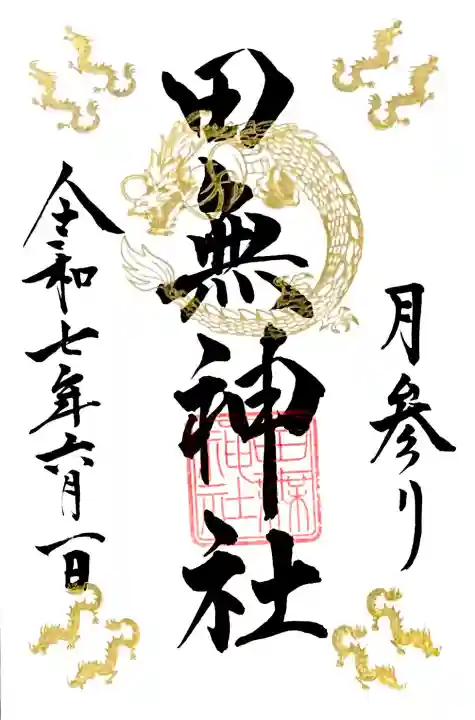 月参り
田無神社
令和七年六月一日
田無神社